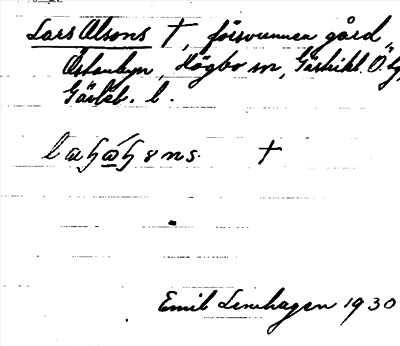 Lars Olsons †, försvunnen gård
Östanbyn, Högbo sn, Gästrikl. Ö. hd,
Gävleb. l.
†
Emil Lenhagen 1930